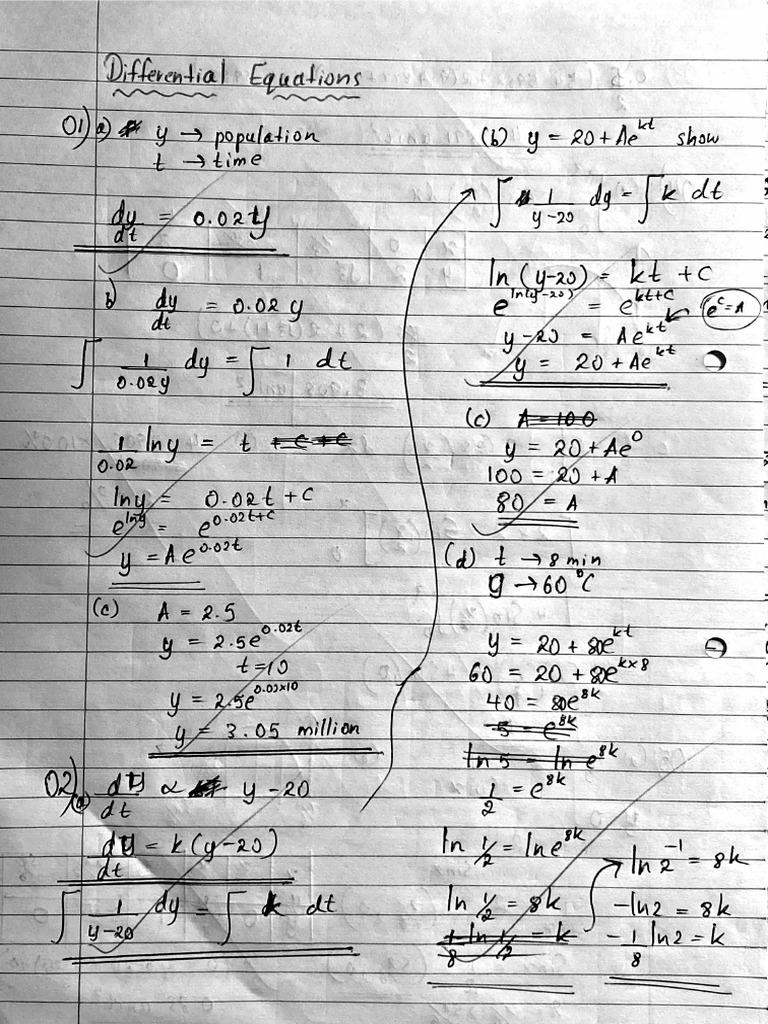 Differential Equations
01) a) y → population
t → time
dy/dt = 0.02y
b) dy/dt = 0.02 y
∫ 1/0.02y dy = ∫ 1 dt
1/0.02 ln y = t
ln y = 0.02t + C
e^lny = e^0.02t+c
y = Ae^0.02t
(c) A = 2.5
y = 2.5e^0.02t
t=10
y = 2.5e^0.02×10
y = 3.05 million
02) (a) dy/dt ∝ y - 20
dy/dt = k(y-20)
∫ 1/y-20 dy = ∫ k dt
(b) y = 20 + Ae^kt show
∫ 1/y-20 dy = ∫ k dt
ln(y-20) = kt + C
e^ln(y-20) = e^kt+c
e^c = A
y-20 = Ae^kt
y = 20 + Ae^kt
(c) A = 100
y = 20 + Ae^0
100 = 20 + A
80 = A
(d) t → 8 min
y → 60°C
y = 20 + 80e^kt
60 = 20 + 80e^k×8
40 = 80e^8k
5 = e^8k
ln 5 = ln e^8k
1/2 = e^8k
ln 1/2 = ln e^8k
ln 1/2 = 8k
1/8 ln 1/2 = k
ln 2^-1 = 8k
-ln2 = 8k
-1/8 ln2 = k